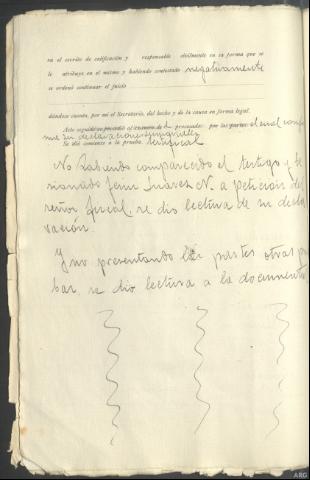 en el escrito de calificación y responsable civilmente en su forma que se
le atribuye en el mismo y habiendo contestado negativamente
se ordenó continuar el juicio
dándose cuenta, por mí el Secretario, del hecho y de la causa en forma legal.
Acto seguido se procedió al examen de procesado por las partes el cual confir
ma su declaraciones sumariales
Se dió comienzo a la prueba testifical
No habiendo comparecido el testigo
Jaime Suarez N. a petición del
señor fiscal, se dio lectura de su decla
ración.
Y no presentando las partes otras pru
bas, se dio lectura a la documental
ARG